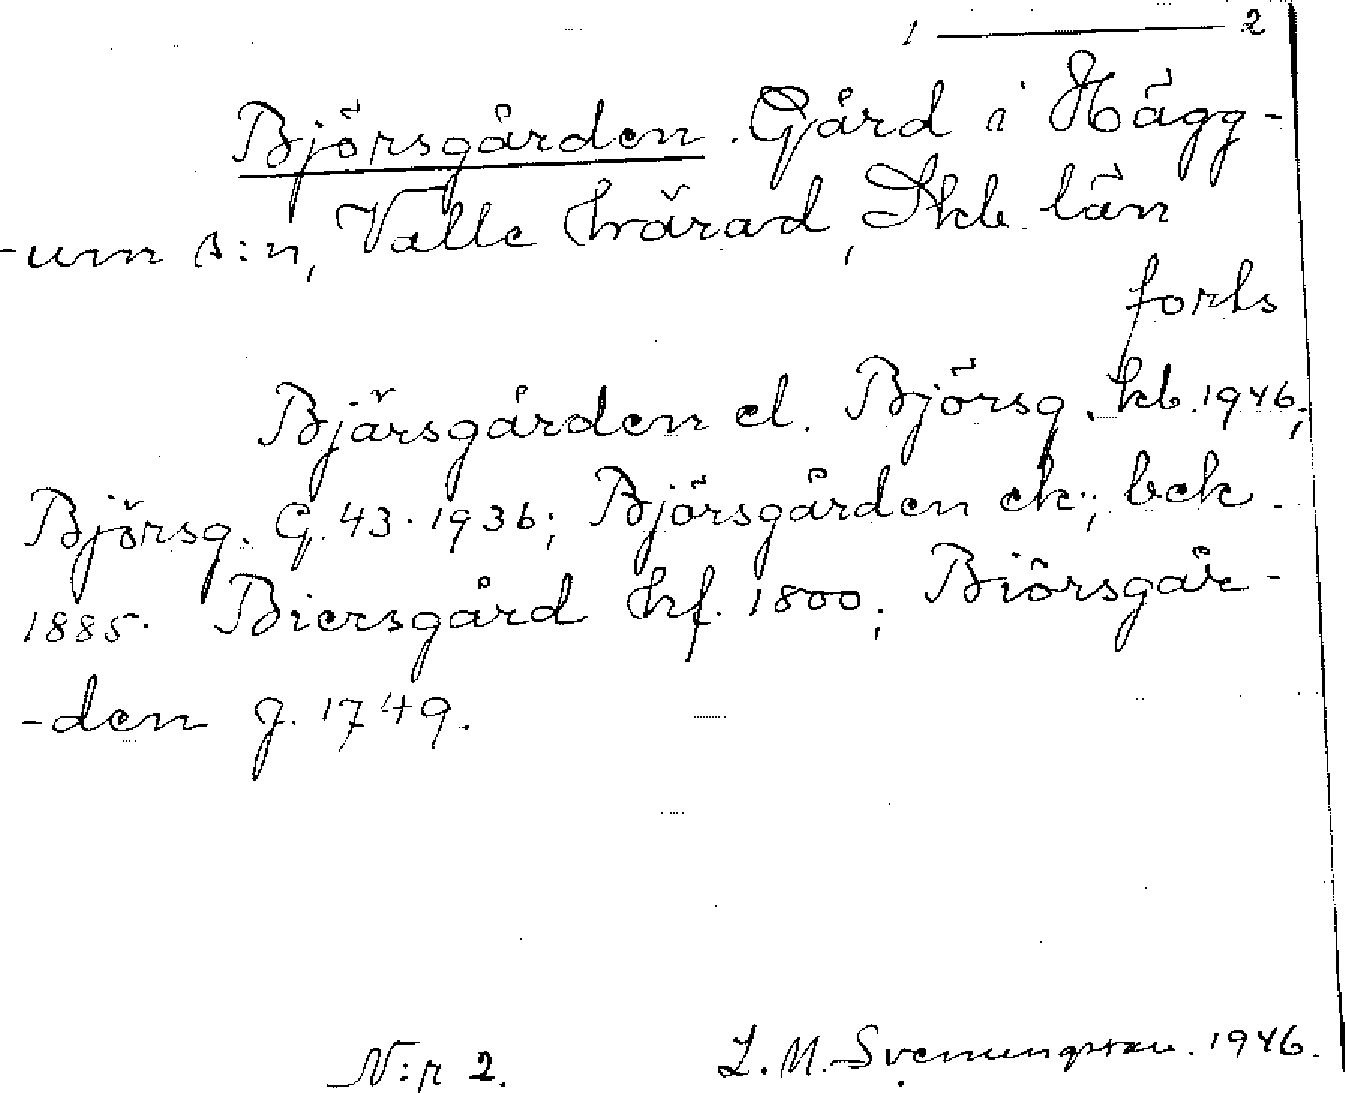 1 ——— 2
Björsgården. Gård i Hägg-
-um s:n, Valle härad, Skb. län
forts
Bjärsgården el. Björsg. kb. 1946;
Björsg. G. 43. 1936; Björsgården ek; bek.
1885. Biersgård hf. 1800; Biörsgår-
-den g. 1749.
N:r 2. L. M. Svenungsson. 1946.